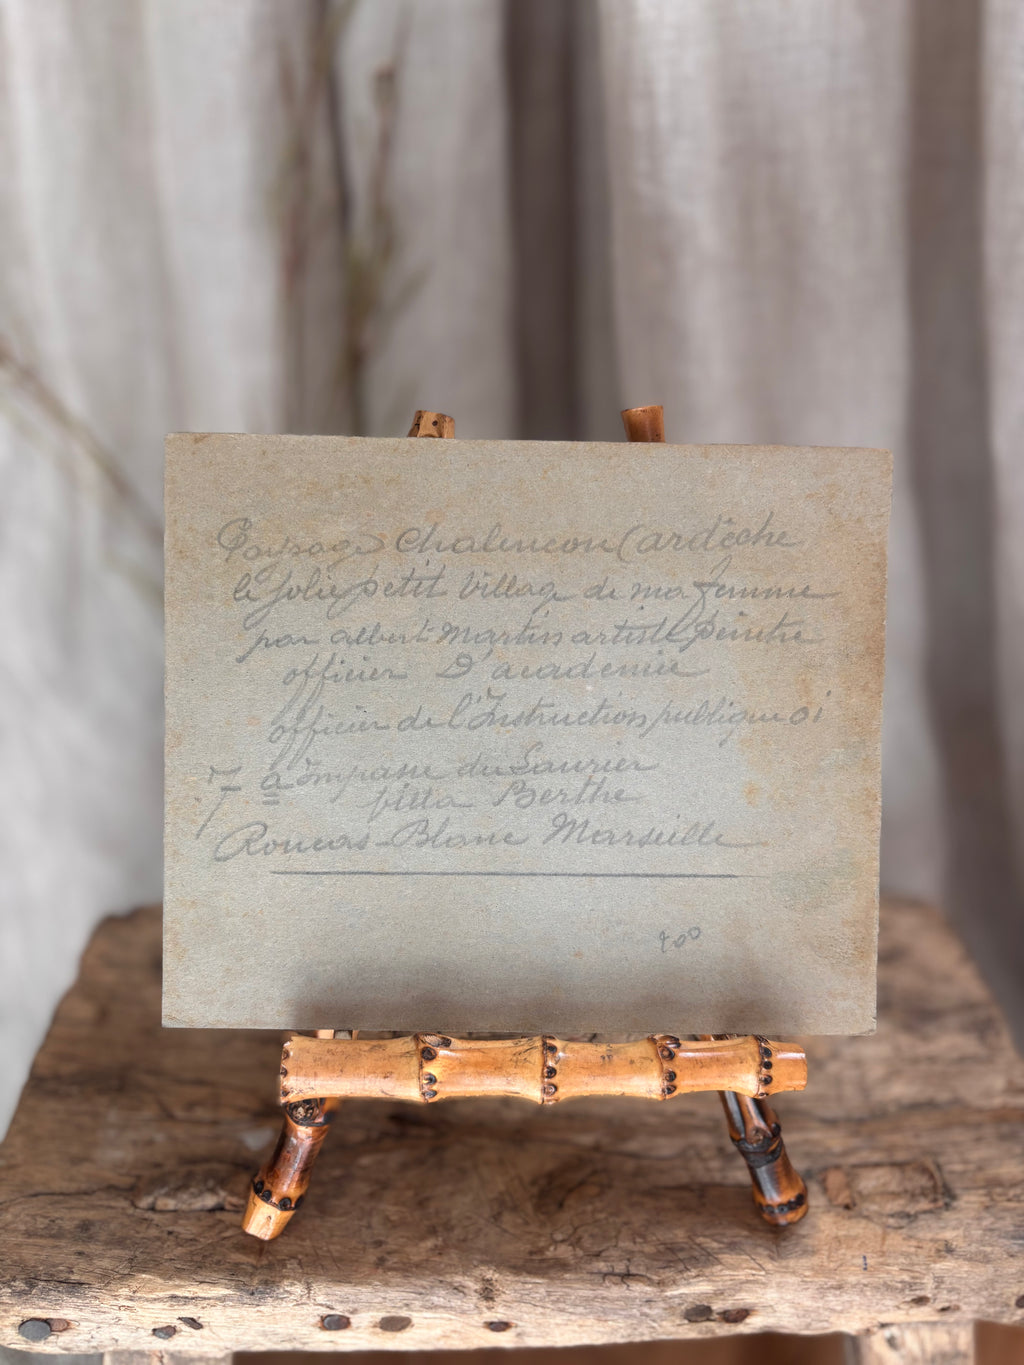 Paysage Chalencon (ardèche
le Jolie petit Village de ma femme
par albert Martin artiste peintre
officier D'academie
officier de l'Instruction publique oi
7 a impasse du Laurier
villa Berthe
Roucas-Blanc Marseille